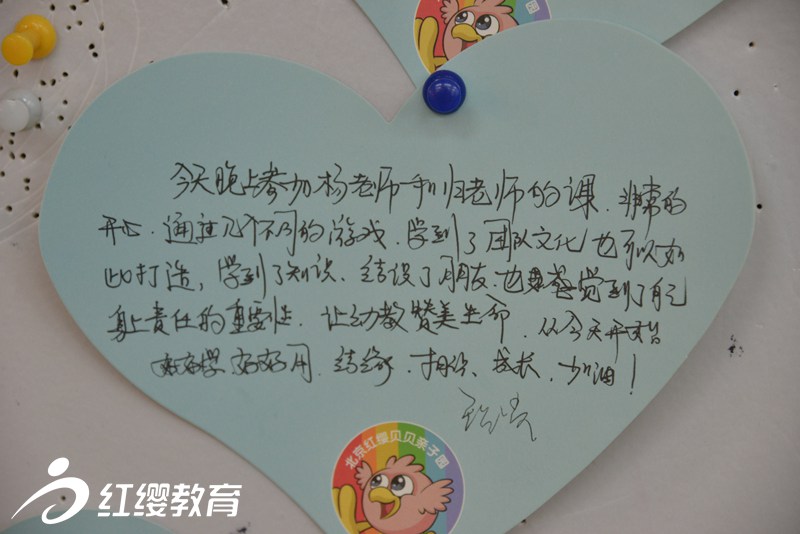 园
今天晚上参加杨老师和归老师的课，非常的
开心。通过几个不同的游戏，学到了团队文化也可以如
此打造，学到了知识、结识了朋友，也更感觉到了自己
身上责任的重要性。让幼教赞美生命，从今天开始
好好学好好用，结缘，相信，成长，加油！
北京红缨贝贝亲子园
红缨教育